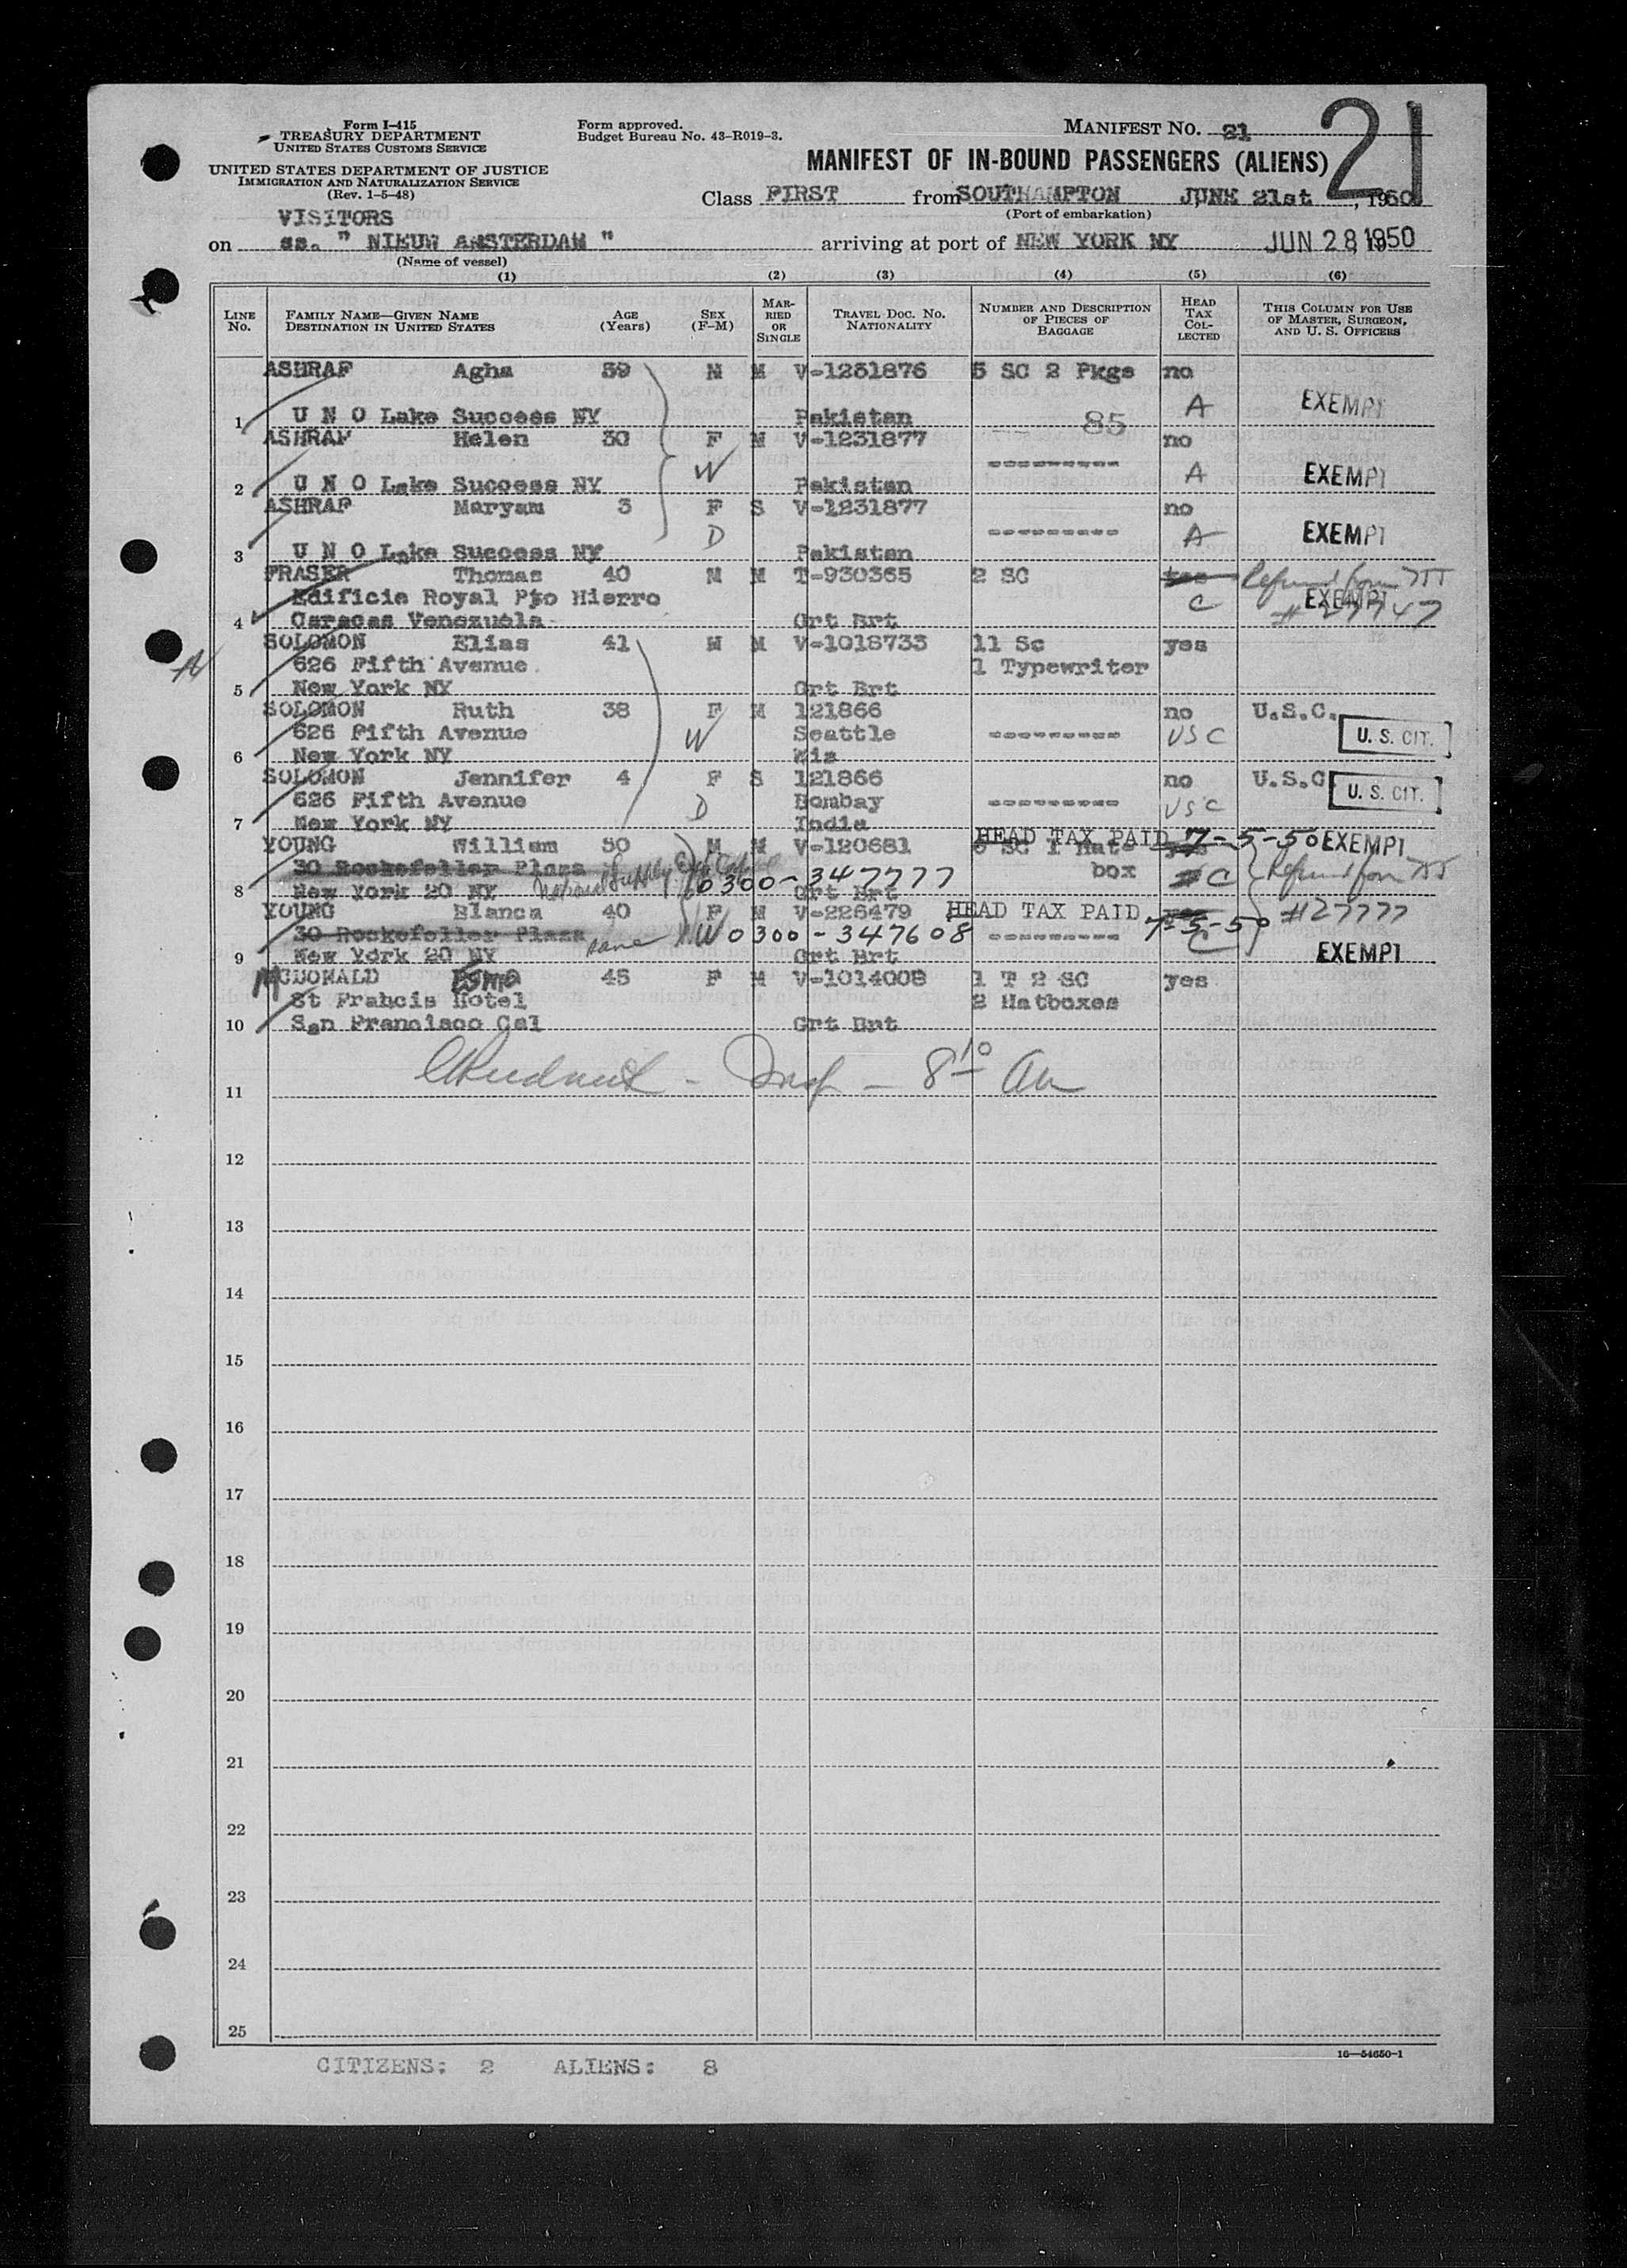 Form I-415
TREASURY DEPARTMENT
UNITED STATES CUSTOMS SERVICE
UNITED STATES DEPARTMENT OF JUSTICE
IMMIGRATION AND NATURALIZATION SERVICE
(Rev. 1-5-48)
Form approved.
Budget Bureau No. 43-R019-3.
MANIFEST NO. 21
21
MANIFEST OF IN-BOUND PASSENGERS (ALIENS)
Class FIRST from SOUTHAMPTON JUNE 21st, 1950
(Port of embarkation)
VISITORS
on ss. " NIEUW AMSTERDAM " arriving at port of NEW YORK NY JUN 28, 1950
(Name of vessel)
(1) (2) (3) (4) (5) (6)
LINE No.
FAMILY NAME—GIVEN NAME
DESTINATION IN UNITED STATES
AGE (Years)
SEX (F-M)
MARRIED OR SINGLE
TRAVEL DOC. NO. NATIONALITY
NUMBER AND DESCRIPTION OF PIECES OF BAGGAGE
HEAD TAX COLLECTED
THIS COLUMN FOR USE OF MASTER, SURGEON, AND U. S. OFFICERS
ASHRAF Agha 39 M M V-1231876 5 SC 2 Pkgs no
A EXEMPT
1 U N O Lake Success NY Pakistan 85
ASHRAF Helen 30 F M V-1231877 no
W --------- A EXEMPT
2 U N O Lake Success NY Pakistan
ASHRAF Maryam 3 F S V-1231877 no
D --------- A EXEMPT
3 U N O Lake Success NY Pakistan
FRASER Thomas 40 M M T-930365 2 SC yes Refund form
Edificia Royal Pto Hierro C EXEMPT
4 Caracas Venezuela Grt Brt # 27747
SOLOMON Elias 41 M M V-1018733 11 Sc yes
626 Fifth Avenue 1 Typewriter
5 New York NY Grt Brt
SOLOMON Ruth 38 F M 121866 no U.S.C.
626 Fifth Avenue W Seattle --------- USC U. S. CIT.
6 New York NY Wis
SOLOMON Jennifer 4 F S 121866 no U.S.C.
626 Fifth Avenue D Bombay --------- USC U. S. CIT.
7 New York NY India
HEAD TAX PAID 7-5-50 EXEMPT
YOUNG William 50 M M V-120681 6 SC 1 Hat- yes
30 Rockefeller Plaza National Supply 0300-347777 box C Refund form
8 New York 20 NY Grt Brt
YOUNG Blanca 40 F M V-226479 HEAD TAX PAID 7-5-50 #27777
30 Rockefeller Plaza same W 0300-347608 --------- C
9 New York 20 NY Grt Brt EXEMPT
MCDONALD 45 F M V-1014008 1 T 2 SC yes
St Francis Hotel 2 Hatboxes
10 San Francisco Cal Grt Brt
Insp - 8 10 am
11
12
13
14
15
16
17
18
19
20
21
22
23
24
25
16-54650-1
CITIZENS: 2 ALIENS: 8